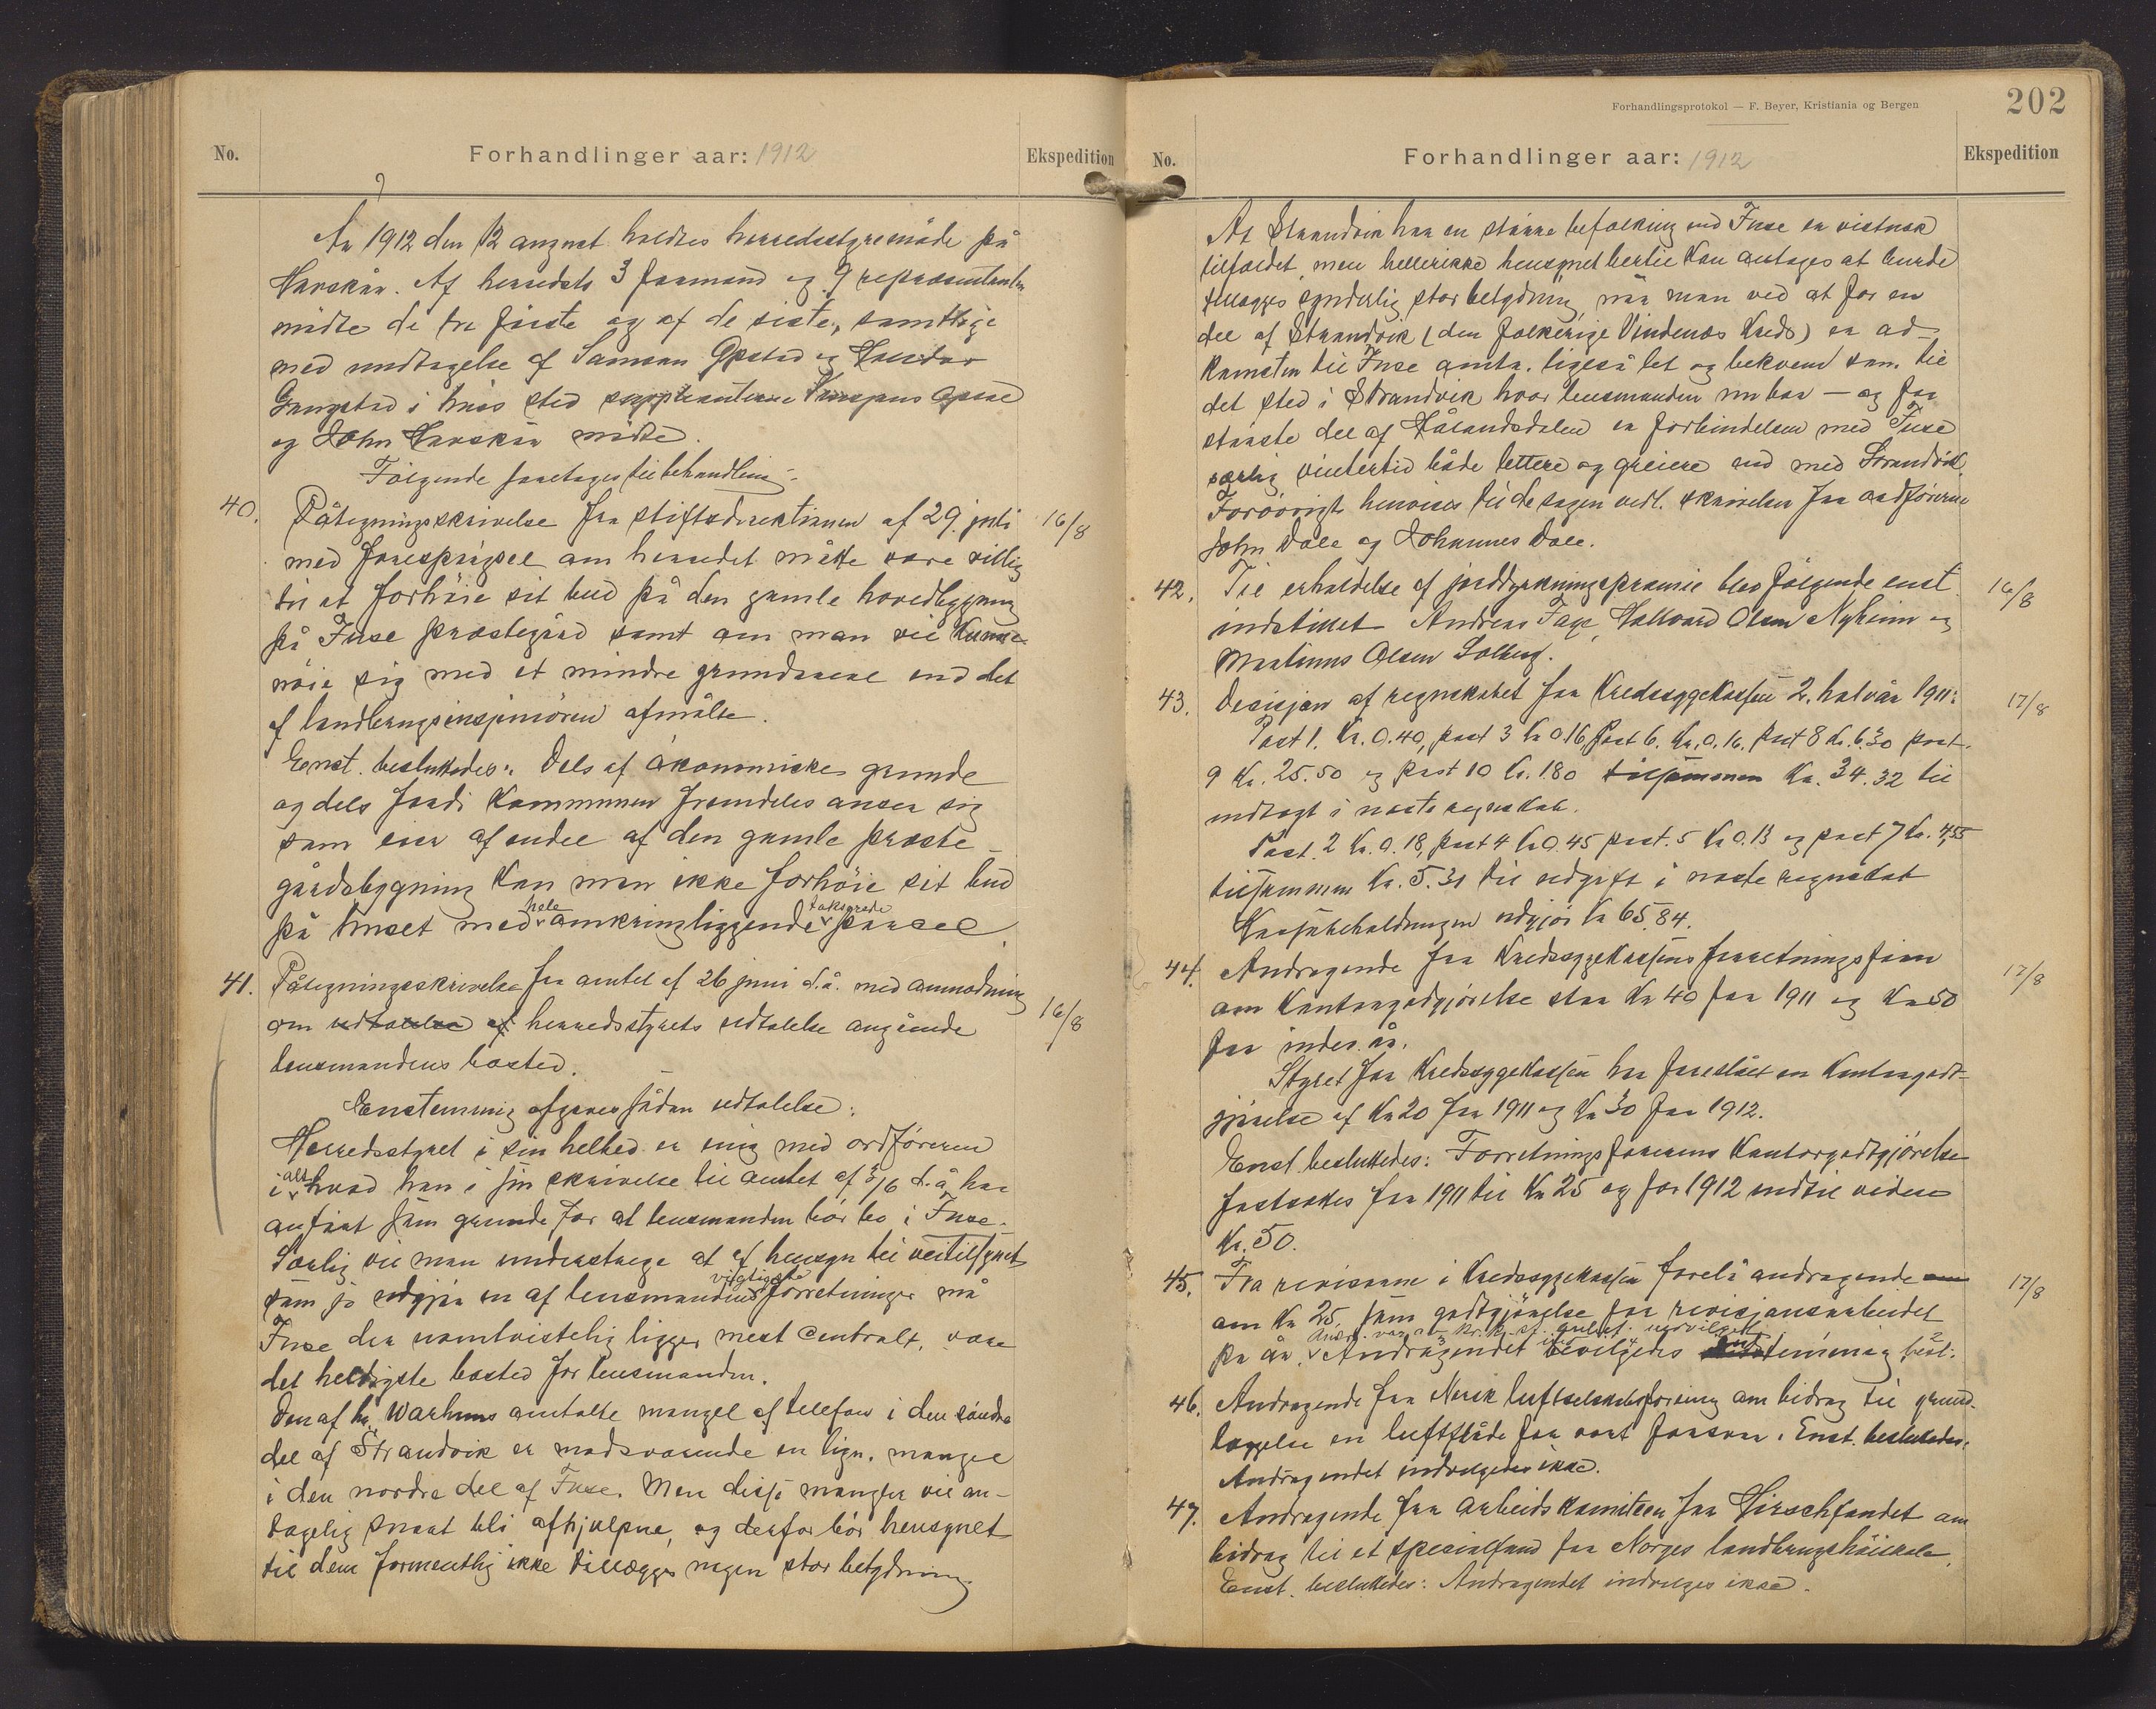 No.
Forhandlinger aar: 1912
Ekspedition
År 1912 den 12 august holdtes herredsstyremøde på
Havskår. Af herredets 3 formænd og 9 repræsentanter
mødte de tre første og af de siste, samtlige
med undtagelse af Samson Opstad og
Gangstad i hvis sted suppleanterne Mogens
og John Havskår mødte.
Følgende foretages til behandling:
40. Påtegningsskrivelse fra stiftsdirektionen af 29. juli 16/8
med forespørgsel om herredet måtte være villig
til at forhøie sit bud på den gamle hovedbygning
på Fuse præstegård samt om man vil kunne
nøie sig med et mindre grundareal end det
af landbrugsingeniøren afmålte.
Enst. besluttedes: Dels af økonomiske grunde
og dels fordi kommunen fremdeles anser sig
som eier af endel af den gamle præste-
gårdsbygning kan man ikke forhøie sit bud
på huset med hele omkringliggende parsel.
41. Påtegningsskrivelse fra amtet af 26 juni d.å. med anmodning
om udtalelse af herredsstyrets udtalelse angående 16/8
lensmandens bosted.
Enstemmig afgaves sådan udtalelse:
Herredsstyret i sin helhed er enig med ordføreren
i alt hvad han i sin skrivelse til amtet af 3/6 d.å. har
anført som grunde for at lensmanden bør bo i Fuse.
Særlig vil man understrege at af hensyn til veitilsynet
som jo udgjør en af lensmandens vigtigste forretninger må
Fuse der uomtvistelig ligger mest centralt, være
det heldigste bosted for lensmanden.
Den af hr. Warhuus omtalte mangel af telefon i den søndre
del af Strandvik er modsvarende en lign. mangel
i den nordre del af Fuse. Men disse mangler vil an-
tagelig snart bli afhjulpne, og derfor bør hensynet
til dem formentlig ikke tillægges nogen stor betydning
Forhandlingsprotokol — F. Beyer, Kristiania og Bergen
202
No.
Forhandlinger aar: 1912
Ekspedition
At Strandvik har en større befolkning end Fuse er vistnok
tilfældet, men hellerikke hensynet hertil kan antages at burde
tillægges synderlig stor betydning, når man ved at for en
del af Strandvik (den folkerige Vindenes Kreds) er ad-
komsten til Fuse omtr. ligeså let og bekvem som til
det sted i Strandvik hvor lensmanden nu bor — og for
største del af Hålandsdalen er forbindelsen med Fuse
særlig vintertid både lettere og greiere end med Strandvik.
Forøvrigt henvises til de sagen vedl. skrivelser fra ordførerne
John Dale og Johannes Dale.
42. Til erholdelse af jorddyrkningspræmie blev følgende enst. 16/8
indstillet Andreas Hallvard Olsen Nyheim og
Martinus Olsen Solberg.
43. Desisjon af regnskabet for Kredssygekassen 2. halvår 1911: 17/8
Post 1. Kr. 0.40, post 3 Kr 0.16 Post 6. Kr. 0.16. Post 8 Kr. 6.30 post
9 Kr. 25.50 og post 10 Kr. 1.80 tilsammen Kr. 34.32 til
indtægt i næste regnskab.
Post. 2 Kr. 0.18, post 4 Kr 0.45 post. 5 Kr 0.13 og post 7 Kr. 4,55
tilsammen Kr. 5.31 til udgift i næste regnskab
Kassebeholdningen udgjør Kr 65.84.
44. Andragende fra Kredssygekassens forretningsfører 17/8
om Kontorgodtgjørelse stor Kr 40 for 1911 og Kr 50
for indev. år.
Styret for Kredssygekassen har foreslået en Kontorgodt-
gjørelse af Kr 20 for 1911 og Kr 30 for 1912.
Enst. besluttedes: Forretningsførerens Kontorgodtgjørelse
fastsættes for 1911 til Kr 25 og for 1912 indtil videre
Kr. 50.
45. Fra revisorerne i Kredssygekassen forelå andragende om 17/8
om Kr 25, som godtgjørelse for revisjonsarbeidet
pr år. Andragendet bevilgedes enstemmig
46. Andragende fra Norsk luftseiladsforening om bidrag til grund-
læggelse en luftflåde for vort forsvar. Enst. besluttedes:
Andragendet indvilgedes ikke.
47. Andragende fra arbeidskomiteen for Hirschfondet om
bidrag til et specialfond for Norges landbrugshøiskole.
Enst. besluttedes: Andragendet indvilges ikke.